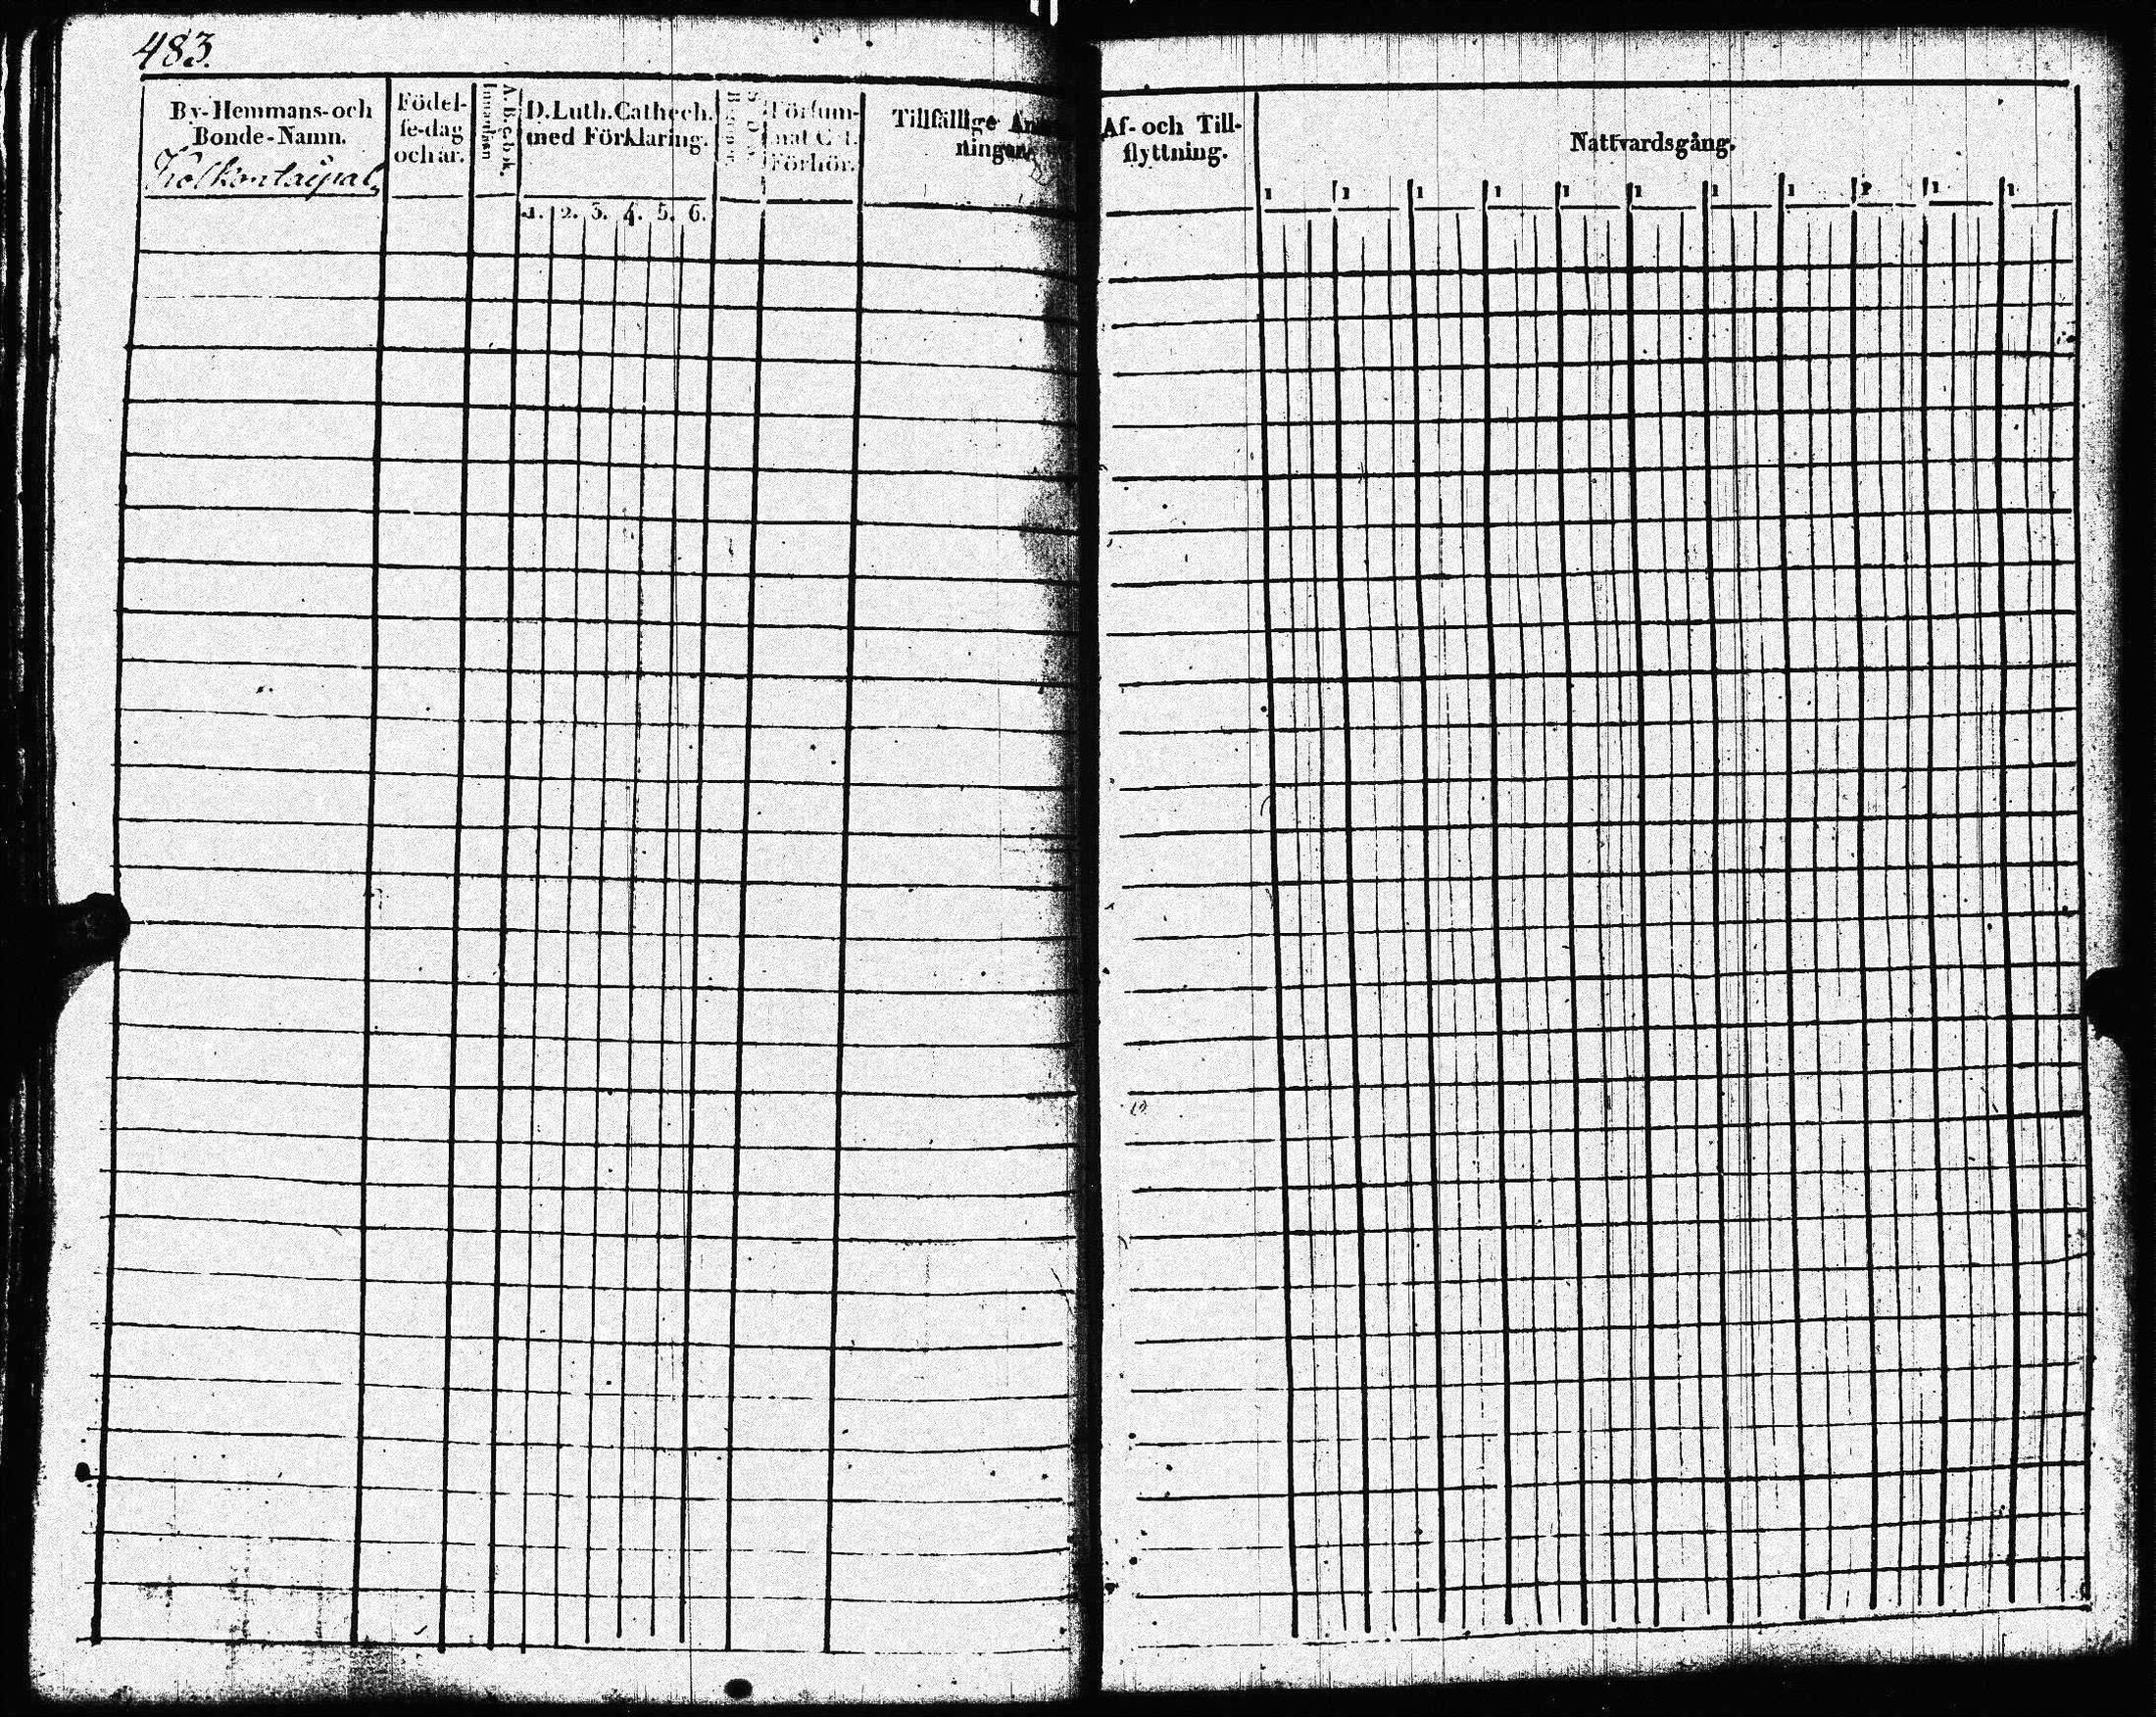 483.
By-Hemmans-och
Bonde-Namn.
Kolkontaipal
Födel-
se-dag
och ar.
Innanläsn
A.B.C.bok.
D. Luth. Cathech.
med Förklaring.
1. 2. 3. 4. 5. 6.
Försum-
Förhör.
Tillfällige
Af- och Till-
flyttning.
Nattvardsgång.
1 1 1 1 1 1 1 1 1 1 1